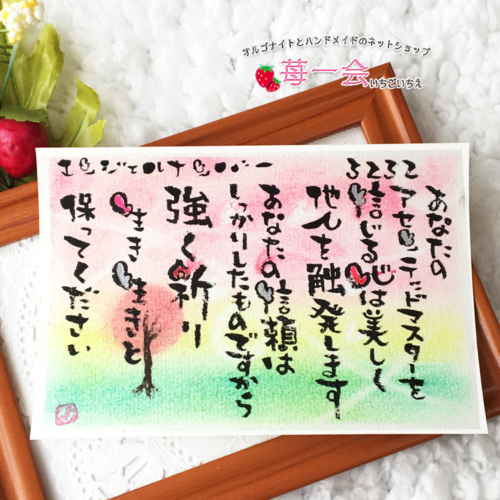 オルゴナイトとハンドメイドのネットショップ
苺一会
いちごいちえ
エンジェルナンバー
3232
あなたの
アセンデッドマスターを
信じる心は美しく
他人を触発します
あなたの信頼は
しっかりしたものですから
強く祈り
生き生きと
保ってください